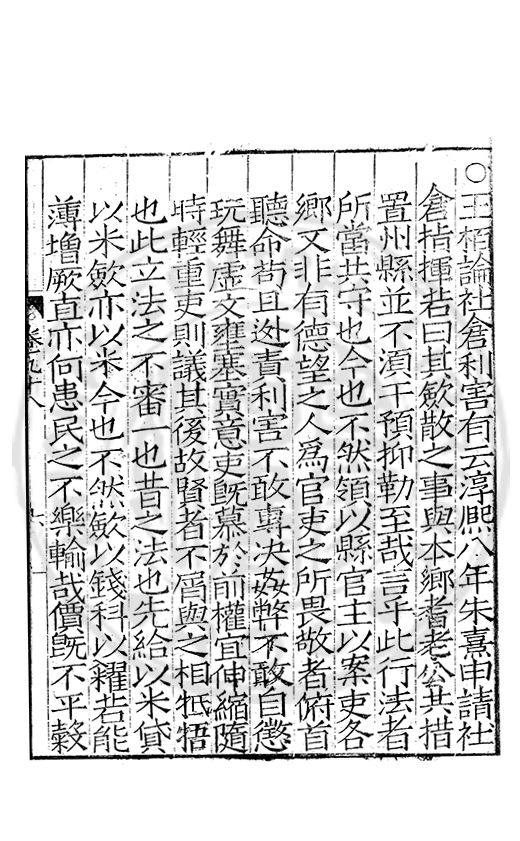 ○王栢論社倉利害有云淳熙八年朱熹申請社
倉指揮若曰其斂散之事與本鄉耆老公共措
置州縣並不湏干預抑勒至哉言乎此行法者
所當共守也今也不然領以縣官主以案吏各
鄉又非有德望之人爲官吏之所畏敬者俯首
聽命苟且迯責利害不敢專决姦弊不敢自懲
玩舞虛文壅塞實意吏旣慕於前權宜伸縮隨
時輕重吏則議其後故賢者不屑與之相牴牾
也此立法之不審一也昔之法也先給以米貸
以米斂亦以米今也不然斂以錢科以糴若能
薄增厥直亦何患民之不樂輸哉價旣不平穀
卷九十八